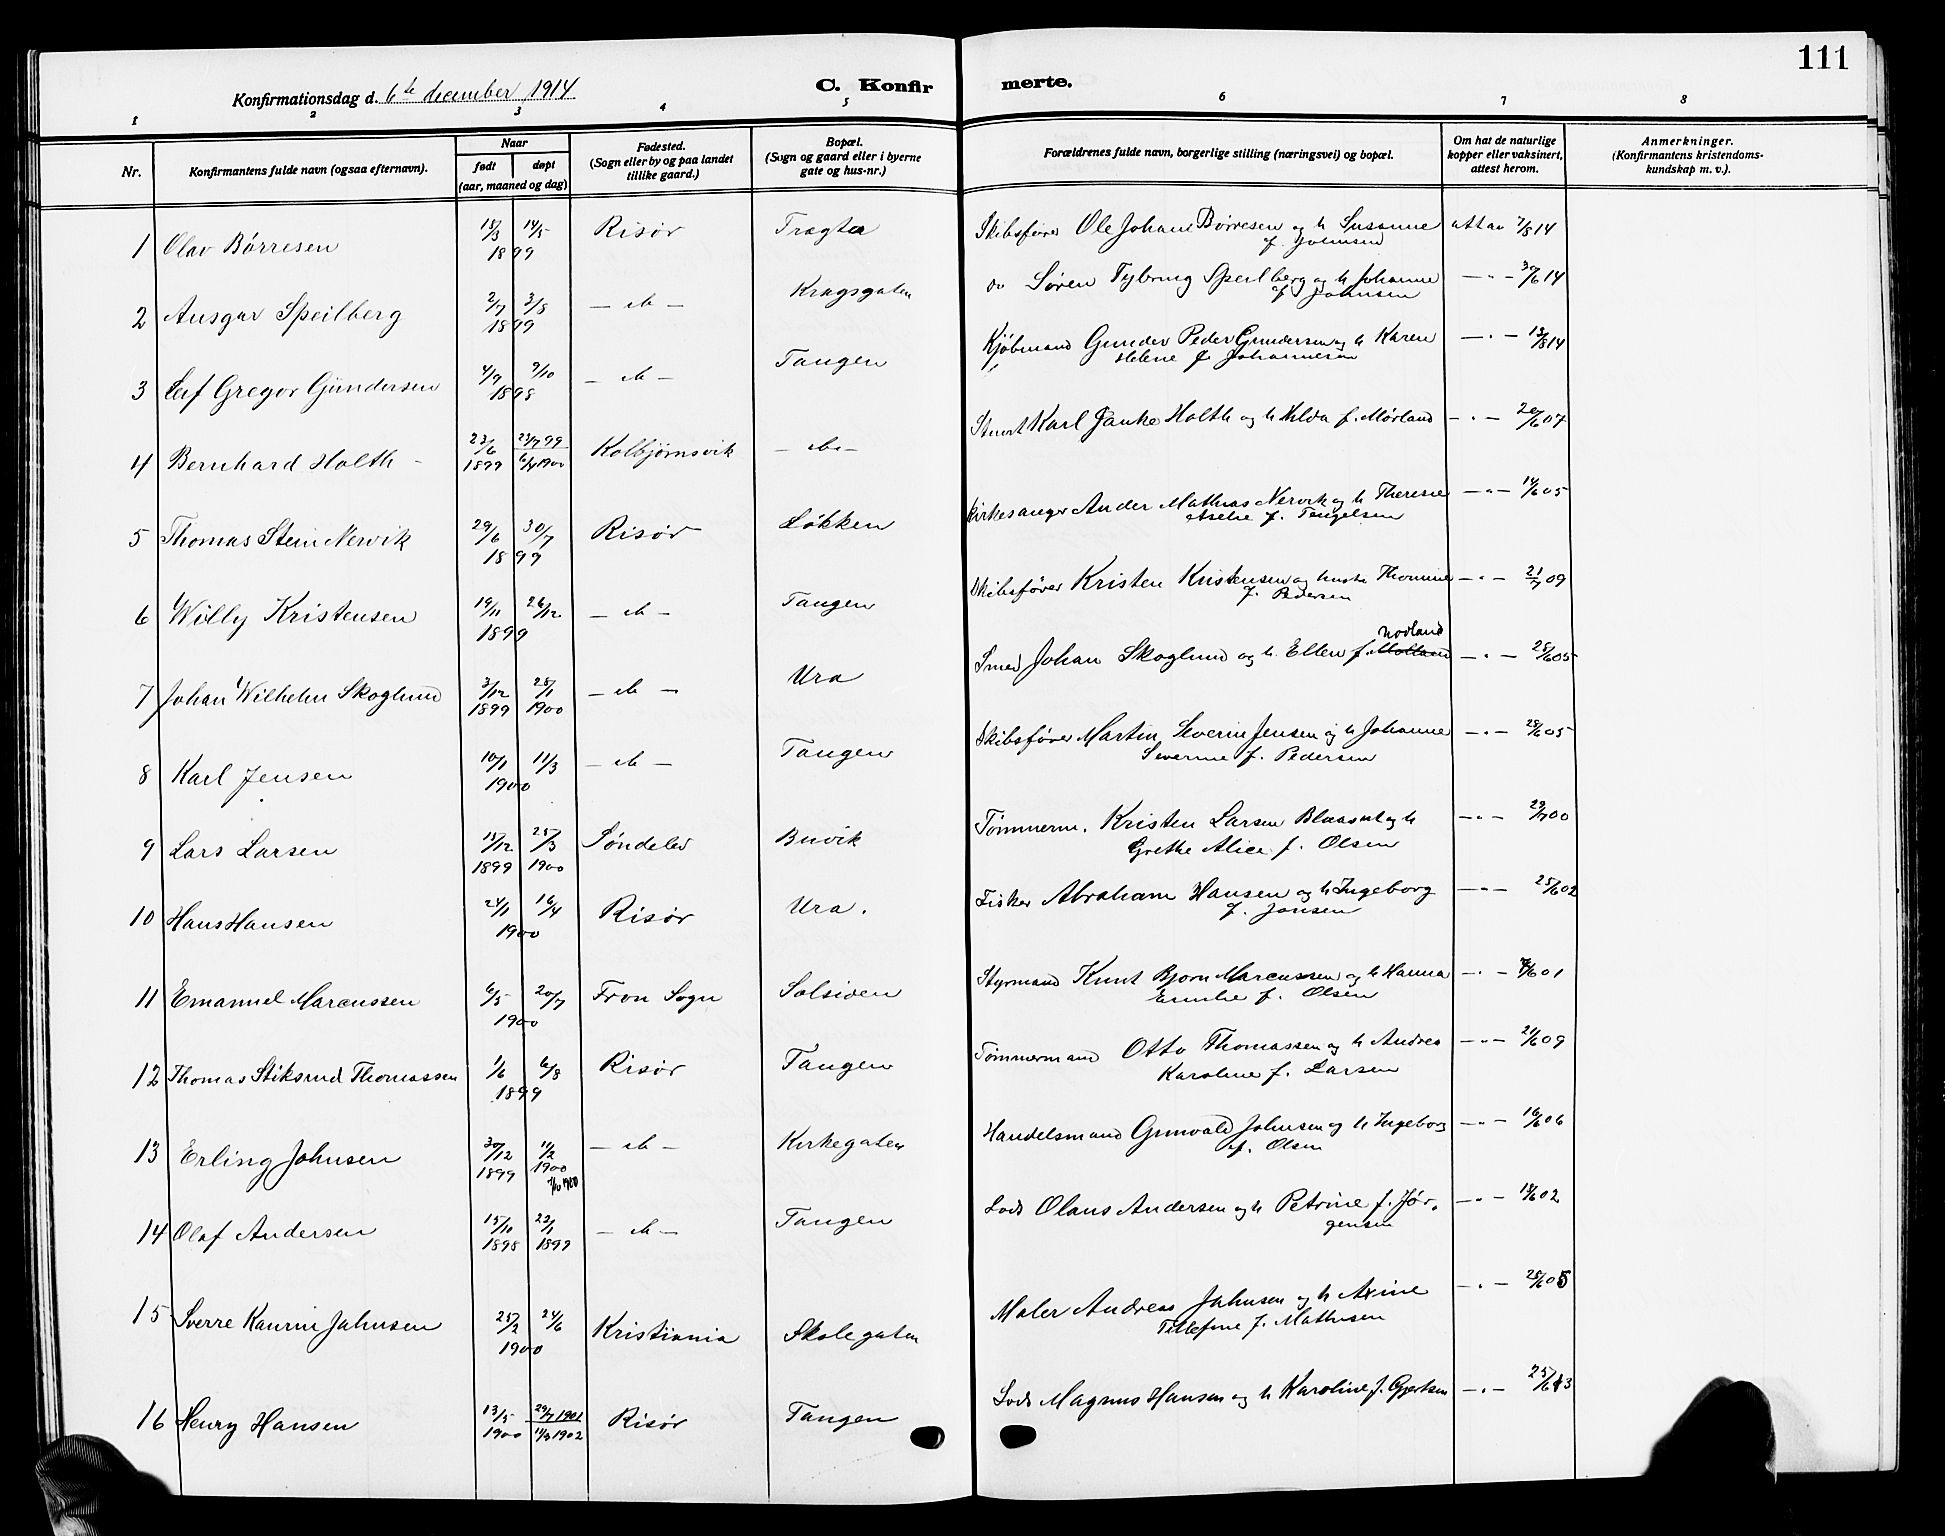 111
Konfirmationsdag d. 6te december 1914
C. Konfirmerte.
1 2 3 4 5 6 7 8
Nr. Konfirmantens fulde navn (ogsaa efternavn). Naar født døpt (aar, maaned og dag) Fødested. (Sogn eller by og paa landet tillike gaard.) Bopæl. (Sogn og gaard eller i byerne gate og hus-nr.) Forældrenes fulde navn, borgerlige stilling (næringsvei) og bopæl. Om hat de naturlige kopper eller vaksinert, attest herom. Anmerkninger. (Konfirmantens kristendoms-kundskap m. v.).
1 Olav Børresen 15/3 14/5 1899 Risør Tragta Skibsfører Ole Johan Børresen og h Susanne f. Johnsen att av 7/8 14
2 Ansgar Speilberg 2/7 3/8 1899 — do — Kragsgaten do Søren Tybring Speilberg og h Johanne f. Johnsen — " — 30/6 14
3 Leif Gregor Gundersen 4/9 9/10 1898 — do — Tangen Kjøbmand Gunder Peder Gundersen og h Karen Helene f. Johannesen — " — 13/8 14
4 Bernhard Holth 23/6 1899 23/7 99 6/4 1900 Kolbjørnsvik — do — Stuert Karl Janke Holth og h Hilda f. Mørland — " — 20/6 07
5 Thomas Stein Nervik 29/6 30/7 1899 Risør Løkken Kirkesanger Ander Mathias Nervik og h Therese Aselie f. Tengelsen — " — 14/6 05
6 Willy Kristensen 19/11 26/12 1899 — do — Tangen Skibsfører Kristen Kristensen og hustr Thomine f. Pedersen — " — 21/7 09
7 Johan Wilhelm Skoglund 3/12 1899 28/1 1900 — do — Ura Smed Johan Skoglund og h. Ellen f. Molland Nodland — " — 25/6 05
8 Karl Jensen 10/1 11/3 1900 — do — Tangen Skibsfører Martin Severin Jensen og h Johanne Severine f. Pedersen — " — 28/6 05
9 Lars Larsen 15/12 1899 25/3 1900 Søndeled Buvik Tømmerm. Kristen Larsen og h Grethe Alice f. Olsen — " — 29/7 00
10 Hans Hansen 24/1 16/4 1900 Risør Ura. Fisker Abraham Hansen og h Ingeborg f. Jansen — " — 25/6 02
11 Emanuel Marcussen 6/5 20/7 1900 Fron Sogn Solsiden Styrmand Knut Bjorn Marcussen og h Hanna Emilie f. Olsen — " — 01
12 Thomas Stiksrud Thomassen 1/6 6/8 1899 Risør Tangen Tømmermand Otto Thomassen og h Andrea Karoline f. Larsen — " — 21/6 09
13 Erling Johnsen 30/12 1899 11/2 1900 7/10 1900 — do — Kirkegaten Handelsmand Gunvald Johnsen og h Ingeborg f. Olsen — " — 16/6 06
14 Olaf Andersen 15/10 1898 22/1 1899 — do — Tangen Lods Olaus Andersen og h Petrine f. Jørgensen — " — 18/6 02
15 Sverre Kaurin Johnsen 25/2 24/6 1900 Kristiania Skolegaten Maler Andreas Johnsen og h Axine Tellefine f. Mathisen — " — 28/6 05
16 Henry Hansen 13/5 1900 29/7 1901 11/3 1902 Risør Tangen Lods Magnus Hansen og h Karoline f. Gjertsen — " — 25/6 13